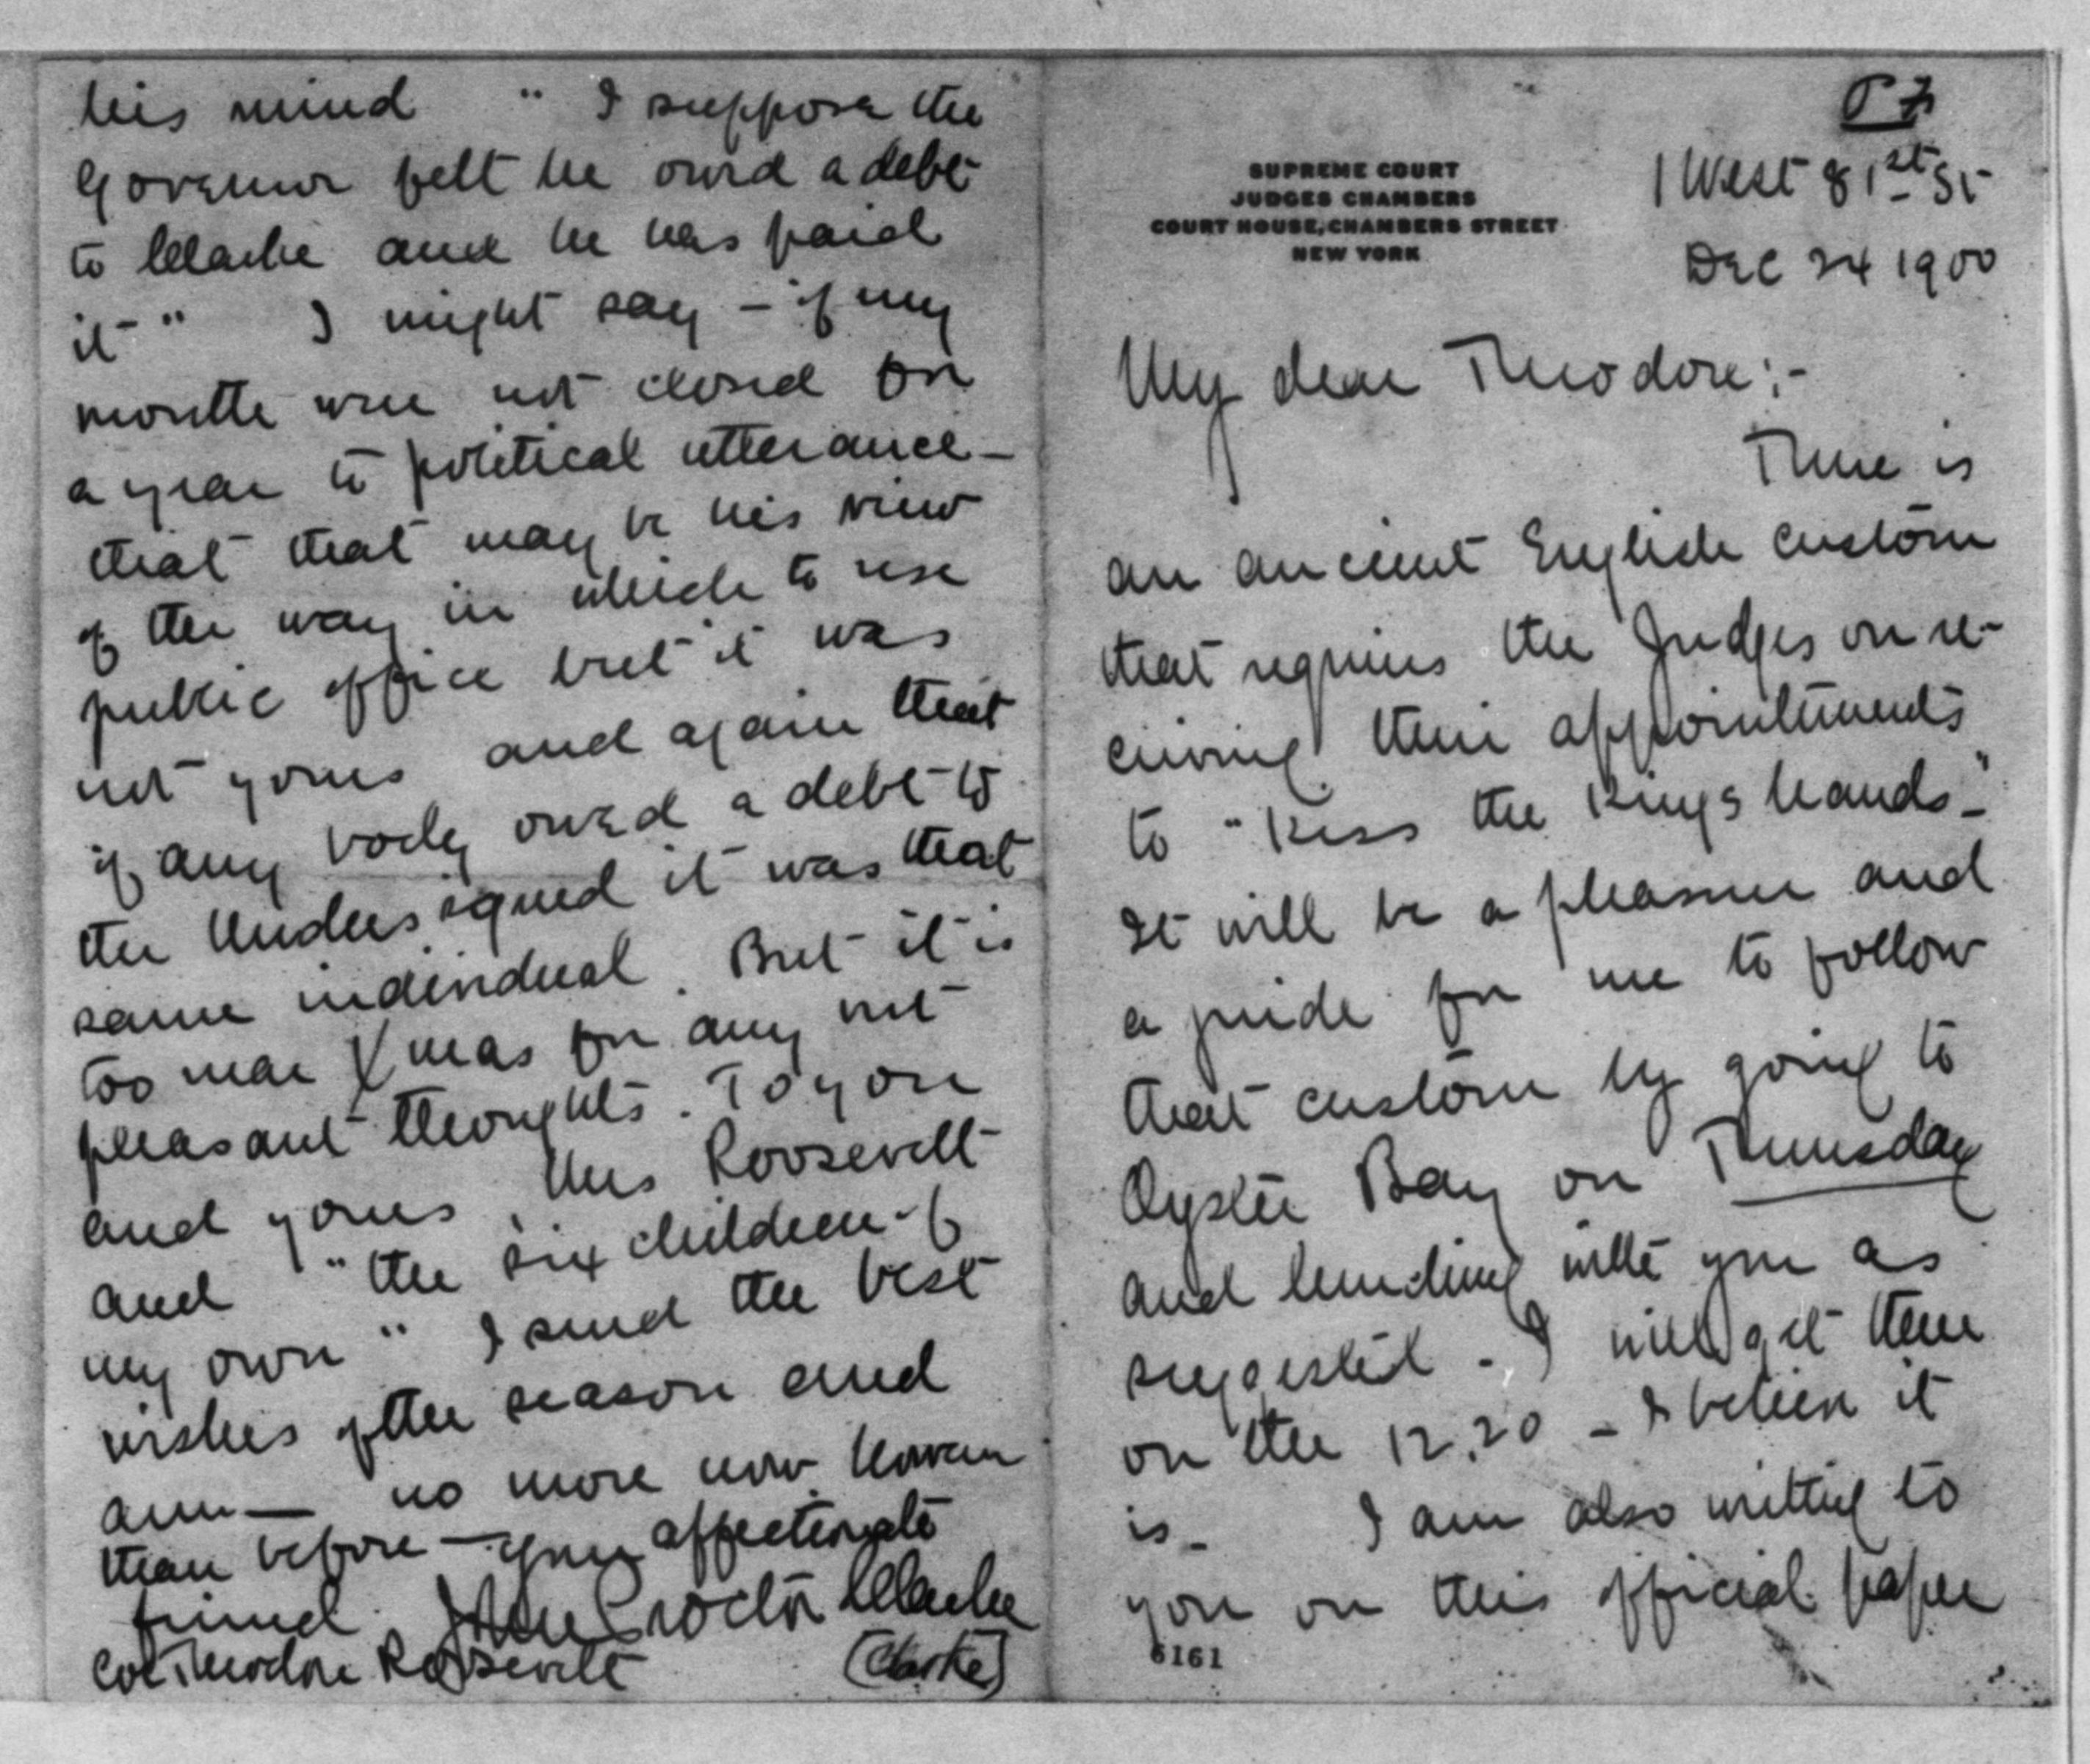 P F
SUPREME COURT
JUDGES CHAMBERS
COURT HOUSE, CHAMBERS STREET
NEW YORK
1 West 81st St
Dec 24 1900
My dear Theodore:-
There is
an ancient English custom
that requires the Judges on re-
ceiving their appointments
to "Kiss the Kings hands-"
It will be a pleasure and
a pride for me to follow
that custom by going to
Oyster Bay on Thursday
and lunching with you as
suggested - I will get there
on the 12.20 - I believe it
is - I am also writing to
you on this official paper
6161
his mind " I suppose the
Governor felt he owed a debt
to Clarke and he has paid
it " I might say - if my
mouth were not closed for
a year to political utterance -
that that may be his view
of the way in which to use
public office but it was
not yours and again that
if any body owed a debt to
the undersigned it was that
same individual. But it is
too near Xmas for any not
pleasant thoughts. To you
and yours, Mrs Roosevelt
and "the six children of
my own" I send the best
wishes of the season and
am - no more now however
than before - your affectionate
friend John Proctor Clarke
Col Theodore Roosevelt (Clarke)